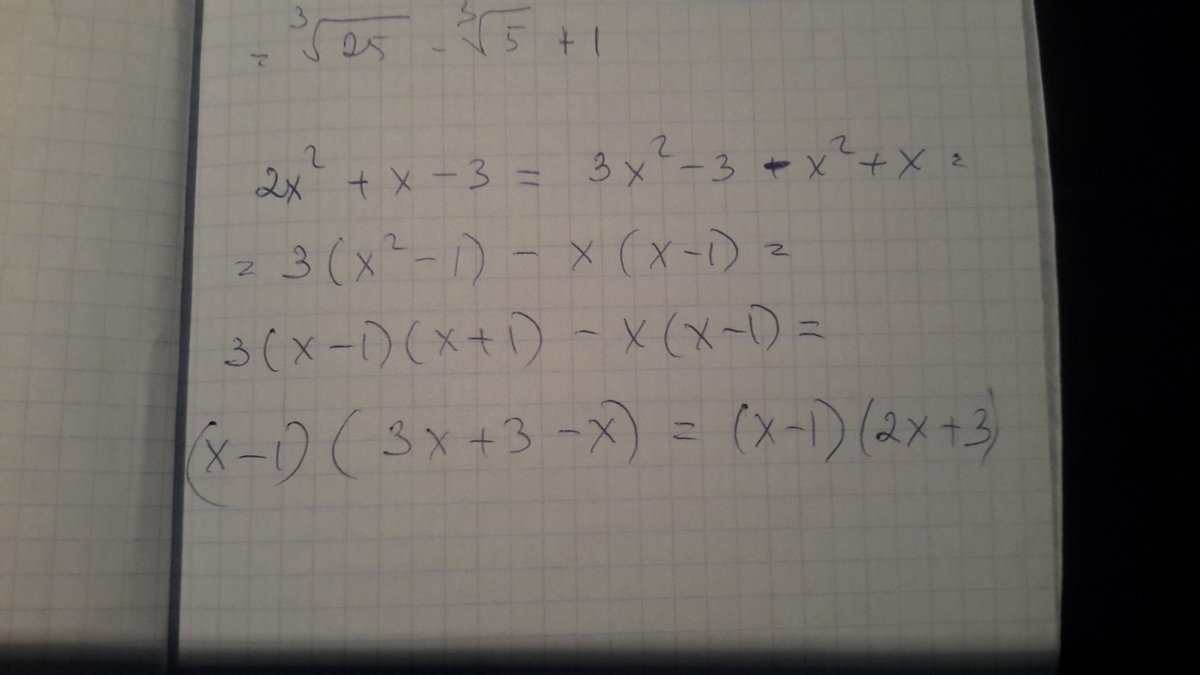 = ∛25 - ∛5 + 1
2x² + x - 3 = 3x² - 3 - x² + x =
= 3(x² - 1) - x(x - 1) =
3(x - 1)(x + 1) - x(x - 1) =
(x - 1)(3x + 3 - x) = (x - 1)(2x + 3)